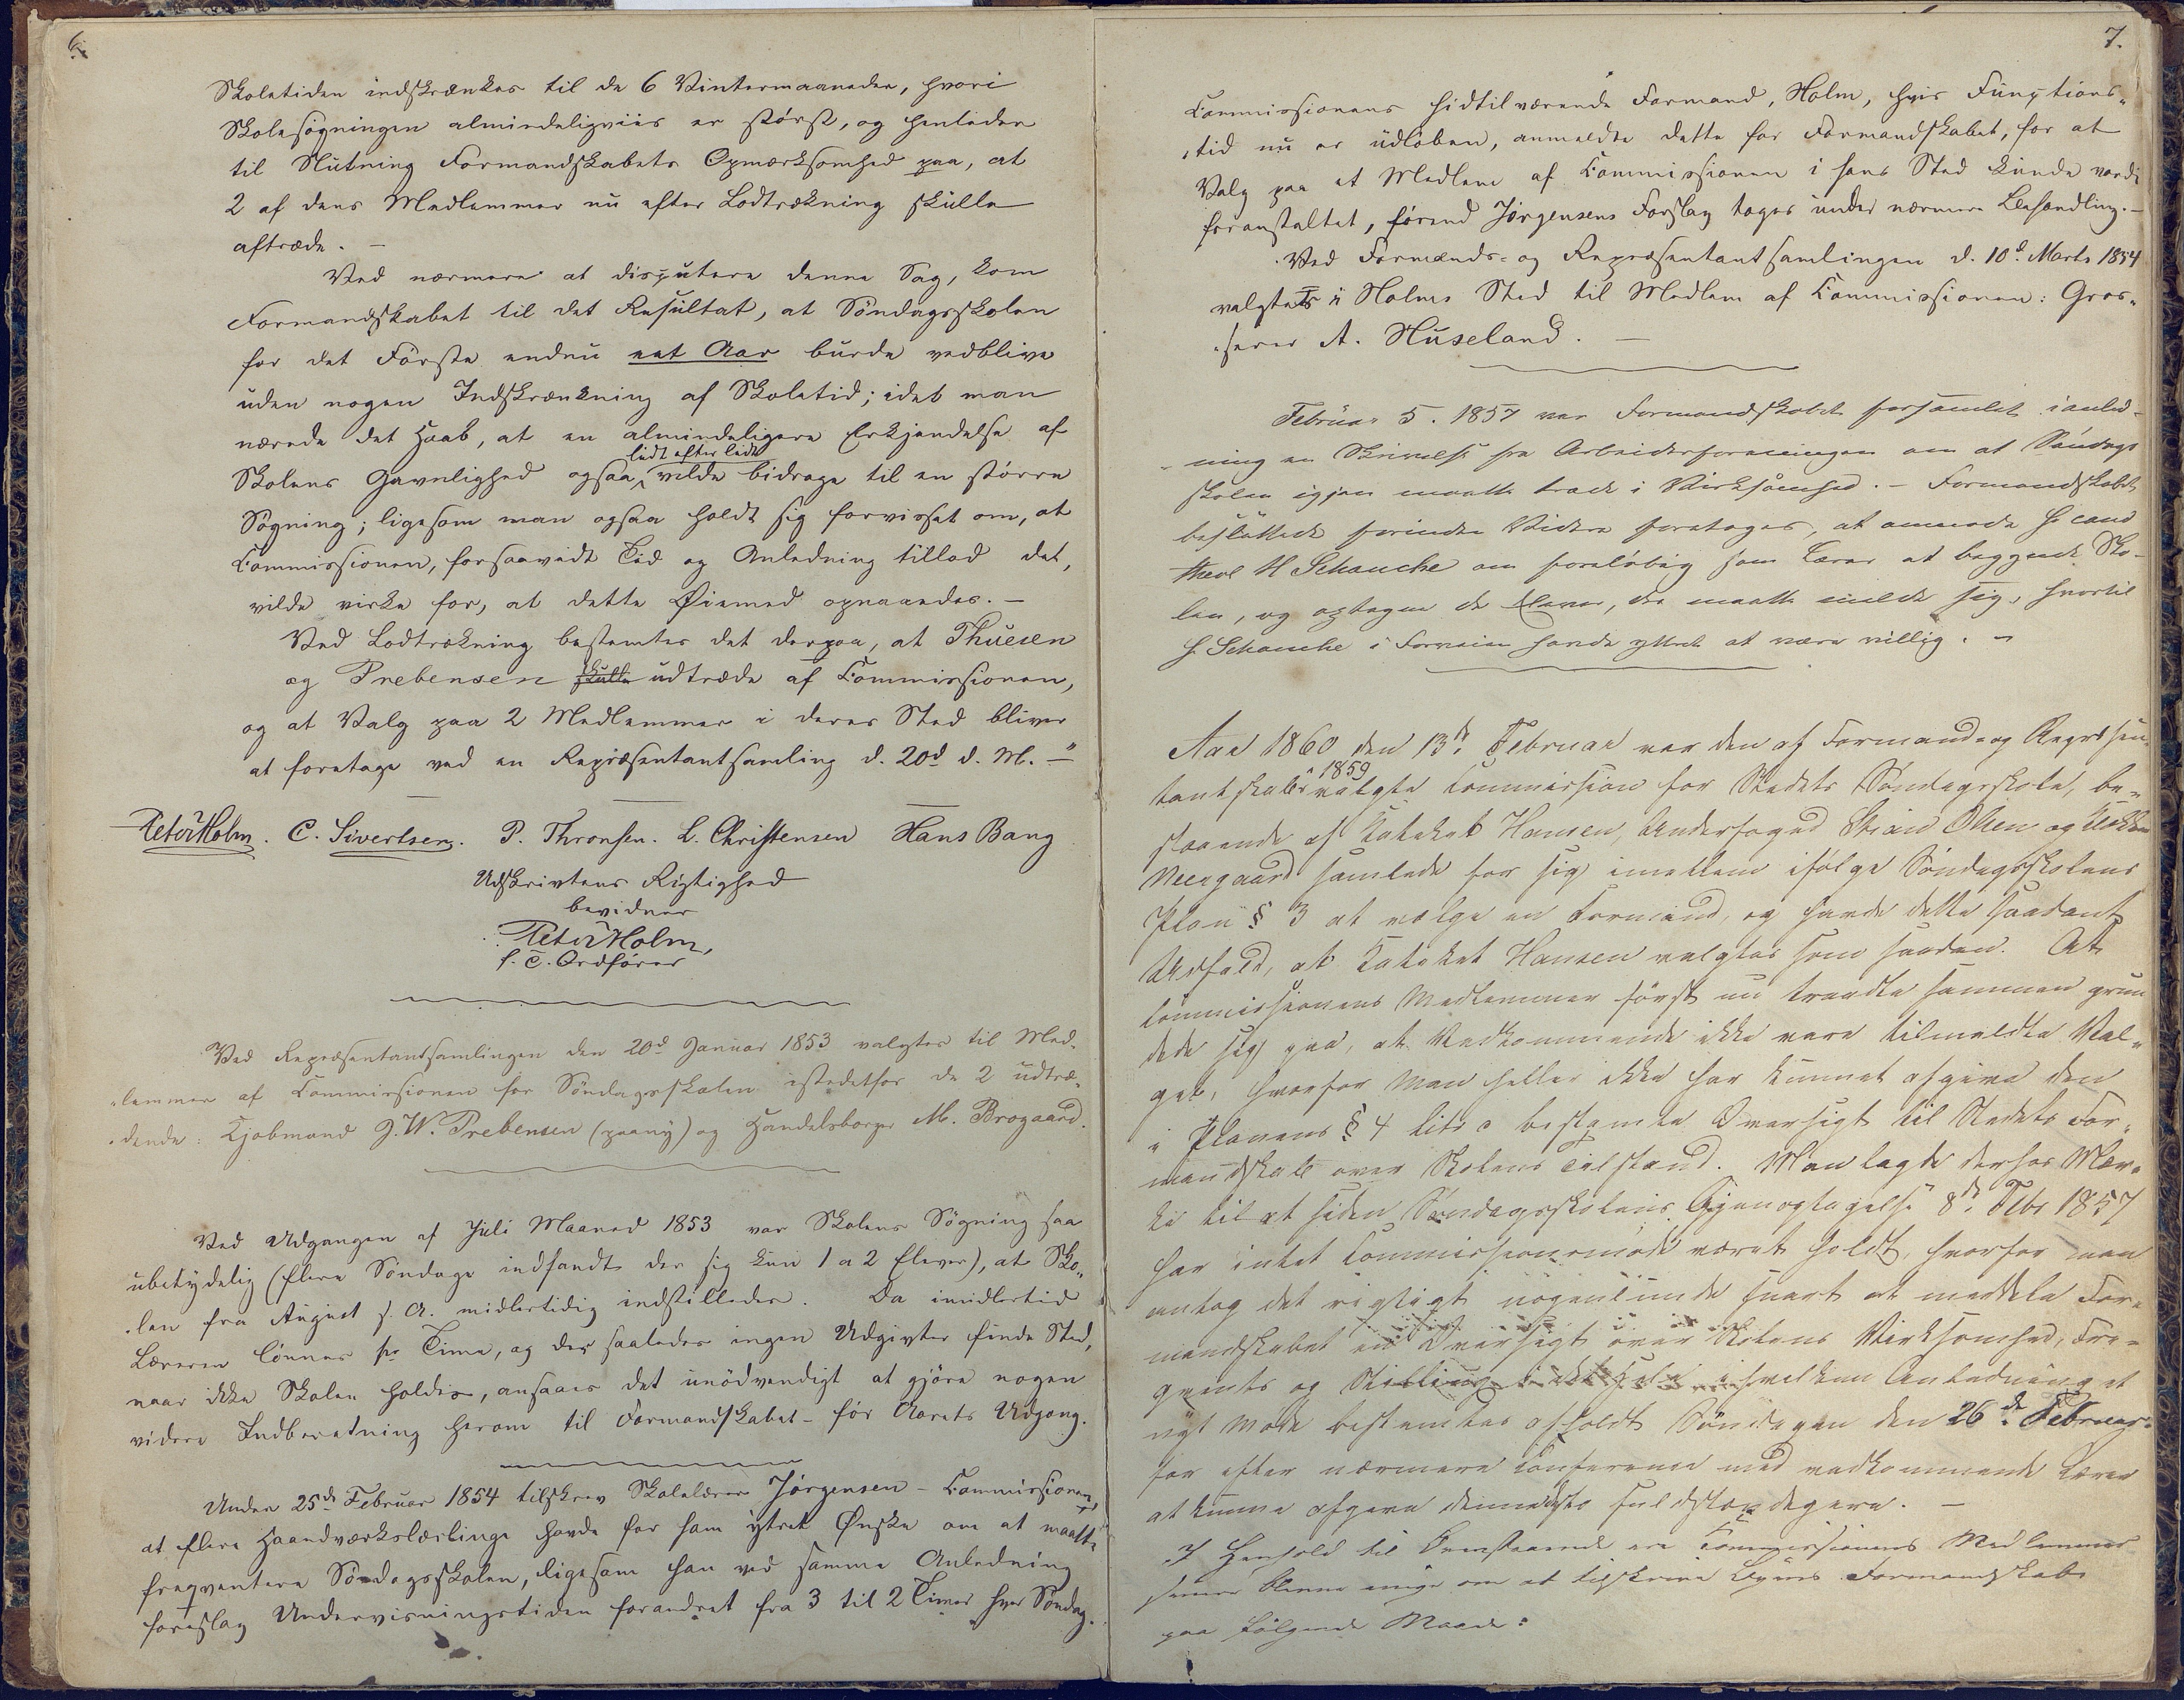 6.
Skoletiden indskrænkes til de 6 Vintermaaneder, hvori
Skolesøgningen almindeligviis er størst, og henleder
til Slutning Formandskabets Opmærksomhed paa, at
2 af dens Medlemmer nu efter Lodtrækning skulle
aftræde. –
Ved nærmere at disputere denne Sag, kom
Formandskabet til det Resultat, at Söndagsskolen
for det Förste endnu eet Aar burde vedblive
uden nogen Indskrænkning af Skoletid; idet man
nærede det Haab, at en almindeligere Erkjendelse af
lidt efter lidt
Skolens Gavnlighed ogsaa vilde bidrage til en större
Sögning; ligesom man ogsaa holdt sig forvisset om, at
Commissionen, forsaavidt Tid og Anledning tillod det,
vilde virke for, at dette Øiemed opnaaedes. –
Ved Lodtrækning bestemtes det derpaa, at Thuesen
og Prebensen skulle udtræde af Commissionen,
og at Valg paa 2 Medlemmer i deres Sted bliver
at foretage ved en Repræsentantsamling d. 20d d. M. –"
Peter Holm. C. Sivertsen. P. Thronsen. L. Christensen Hans Bang
Udskrivtens Rigtighed
bevidner
Peter Holm,
f. T. Ordförer
Ved Repræsentantsamlingen den 20d Januar 1853 valgtes til Med-
lemmer af Commissionen for Söndagsskolen istedetfor de 2 udtræ-
dende: Kjøbmand J. W. Prebensen (paany) og Handelsborger M. Brogaard.
Ved Udgangen af Juli Maaned 1853 var Skolens Sögning saa
ubetydelig (flere Söndage indfandt der sig kun 1 a 2 Elever), at Sko-
len fra August s. A. midlertidig indstilledes. Da imidlertid
Læreren lönnes pr Time, og der saaledes ingen Udgivter finde Sted,
naar ikke Skolen holdes, ansaaes det unödvendigt at gjöre nogen
videre Indberetning herom til Formandskabet – för Aarets Udgang.
Under 25de Februar 1854 tilskrev Skolelærer Jörgensen – Commissionen,
at flere Haandværkslærlinge havde for ham ytret Ønske om at maatte
freqventere Söndagsskolen, ligesom han ved samme Anledning
foreslog Undervisningstiden forandret fra 3 til 2 Timer hver Söndag.
7.
Commissionens hidtilværende Formand, Holm, hvis Functions-
tid nu er udløben, anmeldte dette for Formandskabet, for at
Valg paa et Medlem af Commissionen i hans Sted kunde vorde
foranstaltet, førend Jörgensens Forslag toges under nærmere Behandling. –
Ved Formands- og Repræsentantsamlingen d. 10d Marts 1854
valgtes i Holms Sted til Medlem af Commissionen: Gros-
serer A. Huseland. –
Februar 5. 1857 var Formandskabet forsamlet i anled-
ning en Skrivelse fra Arbeiderforeningen om at Søndags
skolen igjen maatte træde i Virksomhed. – Formandskabet
besluttede forinden Videre foretoges, at anmode Hr cand
theol H Schanche om foreløbig som Lærer at begynde Sko-
len, og optegne de Elever, der maatte melde sig, hvortil
Hr Schanche i Forveien havde yttret at være villig. –
Aar 1860 den 13de Februar var den af Formand- og Repræsen-
1859
tantskabet valgte Commission for Stedets Søndagsskole, be-
staaende af Catechet Hansen, Underfoged Stian Olsen og Klokker
Neergaard samlede for sig imellem ifølge Søndagsskolens
Plan § 3 at vælge en Formand, og havde dette saadant
Udfald, at Catechet Hansen valgtes som saadan. At
Commissionens Medlemmer først nu traadte sammen grun
dede sig paa, at Vedkommende ikke vare tilmeldte Val-
get, hvorfor Man heller ikke har kunnet afgive den
i Planens § 4 litr c bestemte Oversigt til Stedets For-
mandskab over Skolens Tilstand. Man lagde derhos Mær-
ke til at siden Søndagsskolens Gjenoptagelse 8de Febr 1857
har intet Commissionsmøde været holdt, hvorfor man
antog det rigtigt nogenlunde snart at meddele For-
mandskabet en Oversigt over Skolens Virksomhed, Fre-
qvents og Stilling i hvilken Anledning et
nyt Møde bestemtes afholdt Søndagen den 26de Februar
for efter nærmere Conference med vedkommende Lærer
at kunne afgive den fuldstændigere. –
I Henhold til Ovenstaaende ere Commissionens Medlemmer
senere blevne enige om at tilskrive Byens Formandskab
paa følgende Maade: